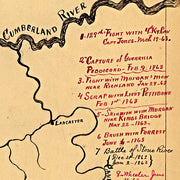 CUMBERLAND RIVER
8. 129th FIGHT WITH
CAPT JONES. MCH 19-63.
12 CAPTURE OF GUERRILLA
PEDDICORD - FEB 9, 1863
3. FIGHT WITH MORGAN'S MEN
NEAR RICHLAND JAN 25-63
4 SCRAP WITH LIEUT PETTIBONE
FEB 1ST 1863
5 - SKIRMISH WITH MORGAN
NEAR KINGS BRIDGE
MAY 25-1863
6 BRUSH WITH FORREST
JUNE 4 - 1863
7 Battle of Stone River
Dec 31 1862
Jan 2 1863
LANCASTER
8 Wheeler June